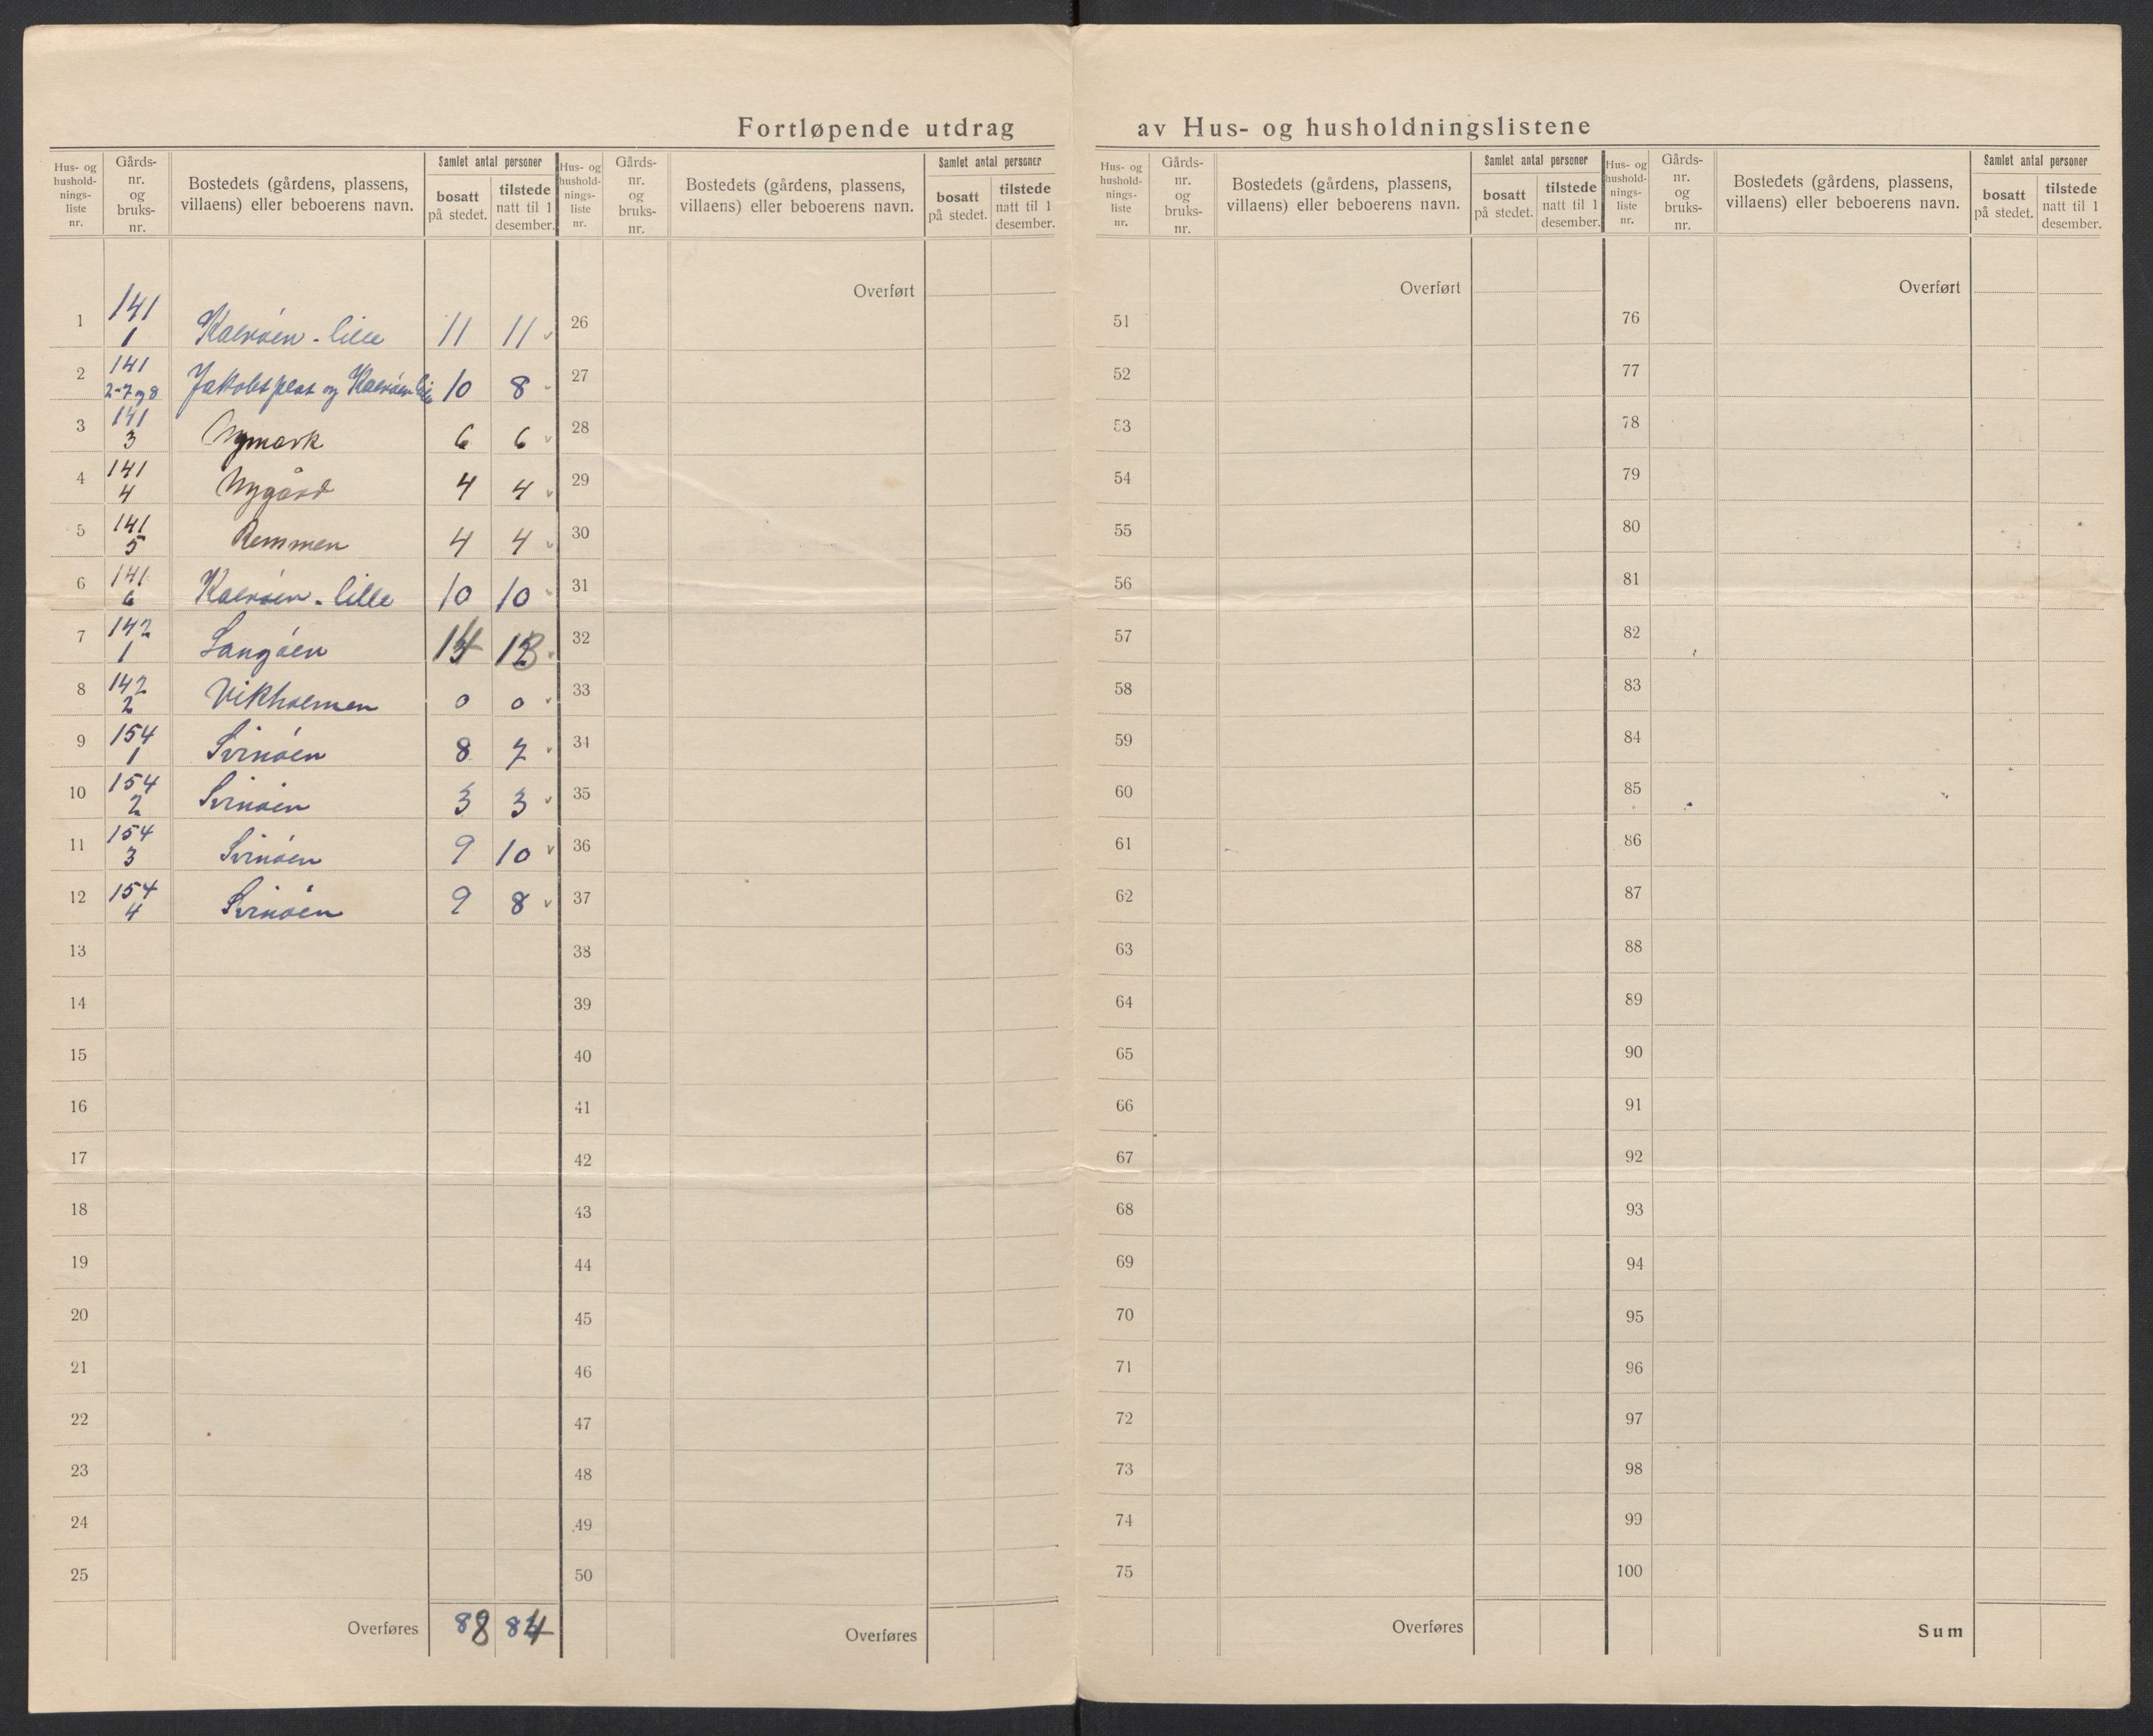 Fortløpende utdrag av Hus- og husholdningslistene
Hus- og hushold- nings- liste nr. | Gårds- nr. og bruks- nr. | Bostedets (gårdens, plassens, villaens) eller beboerens navn. | Samlet antal personer | bosatt på stedet. | tilstede natt til 1 desember.
Hus- og hushold- nings- liste nr. | Gårds- nr. og bruks- nr. | Bostedets (gårdens, plassens, villaens) eller beboerens navn. | Samlet antal personer | bosatt på stedet. | tilstede natt til 1 desember.
Hus- og hushold- nings- liste nr. | Gårds- nr. og bruks- nr. | Bostedets (gårdens, plassens, villaens) eller beboerens navn. | Samlet antal personer | bosatt på stedet. | tilstede natt til 1 desember.
Hus- og hushold- nings- liste nr. | Gårds- nr. og bruks- nr. | Bostedets (gårdens, plassens, villaens) eller beboerens navn. | Samlet antal personer | bosatt på stedet. | tilstede natt til 1 desember.
Overført Overført Overført
1 141 1 Kalvøen - lille 11 11 26 51 76
2 141 2-7 og 8 Jakobsplas og Kalvøen lille 10 8 27 52 77
3 141 3 Nymark 6 6 28 53 78
4 141 4 Nygård 4 4 29 54 79
5 141 5 Remmen 4 4 30 55 80
6 141 6 Kalvøen - lille 10 10 31 56 81
7 142 1 Langøen 14 13 32 57 82
8 142 2 Vikholmen 0 0 33 58 83
9 154 1 Svinøen 8 7 34 59 84
10 154 2 Svinøen 3 3 35 60 85
11 154 3 Svinøen 9 10 36 61 86
12 154 4 Svinøen 9 8 37 62 87
13 38 63 88
14 39 64 89
15 40 65 90
16 41 66 91
17 42 67 92
18 43 68 93
19 44 69 94
20 45 70 95
21 46 71 96
22 47 72 97
23 48 73 98
24 49 74 99
25 50 75 100
Overføres 88 84 Overføres Overføres Sum